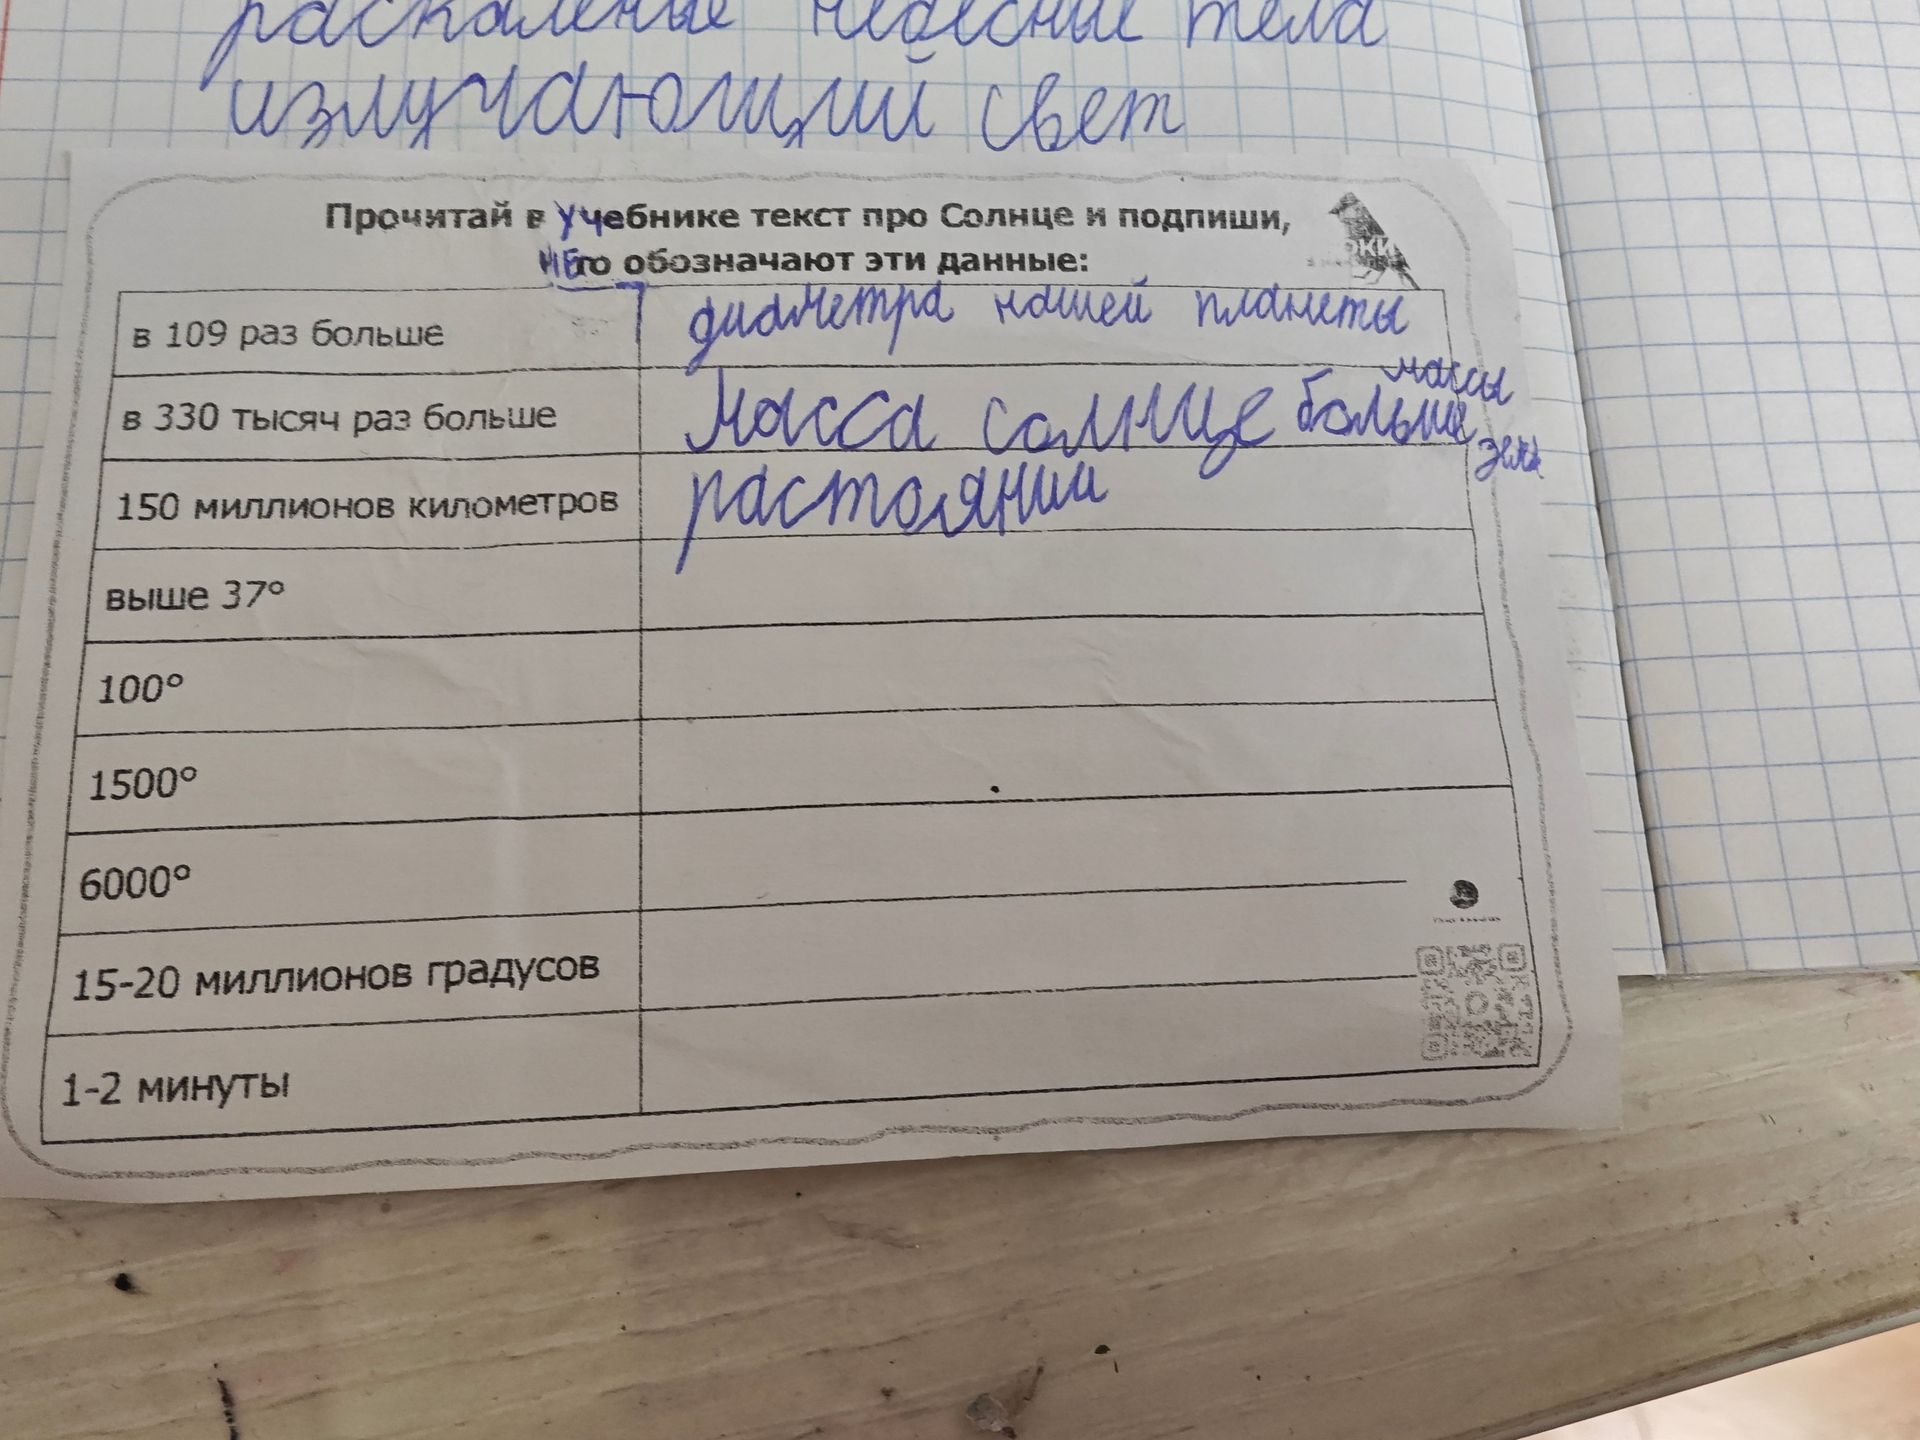 раскаленые небесные тела
излучающий свет
Прочитай в учебнике текст про Солнце и подпиши,
что обозначают эти данные:
в 109 раз больше
диаметра нашей планеты
в 330 тысяч раз больше
масса солнце больше массы
150 миллионов километров
растоянии
выше 37°
100°
1500°
6000°
15-20 миллионов градусов
1-2 минуты